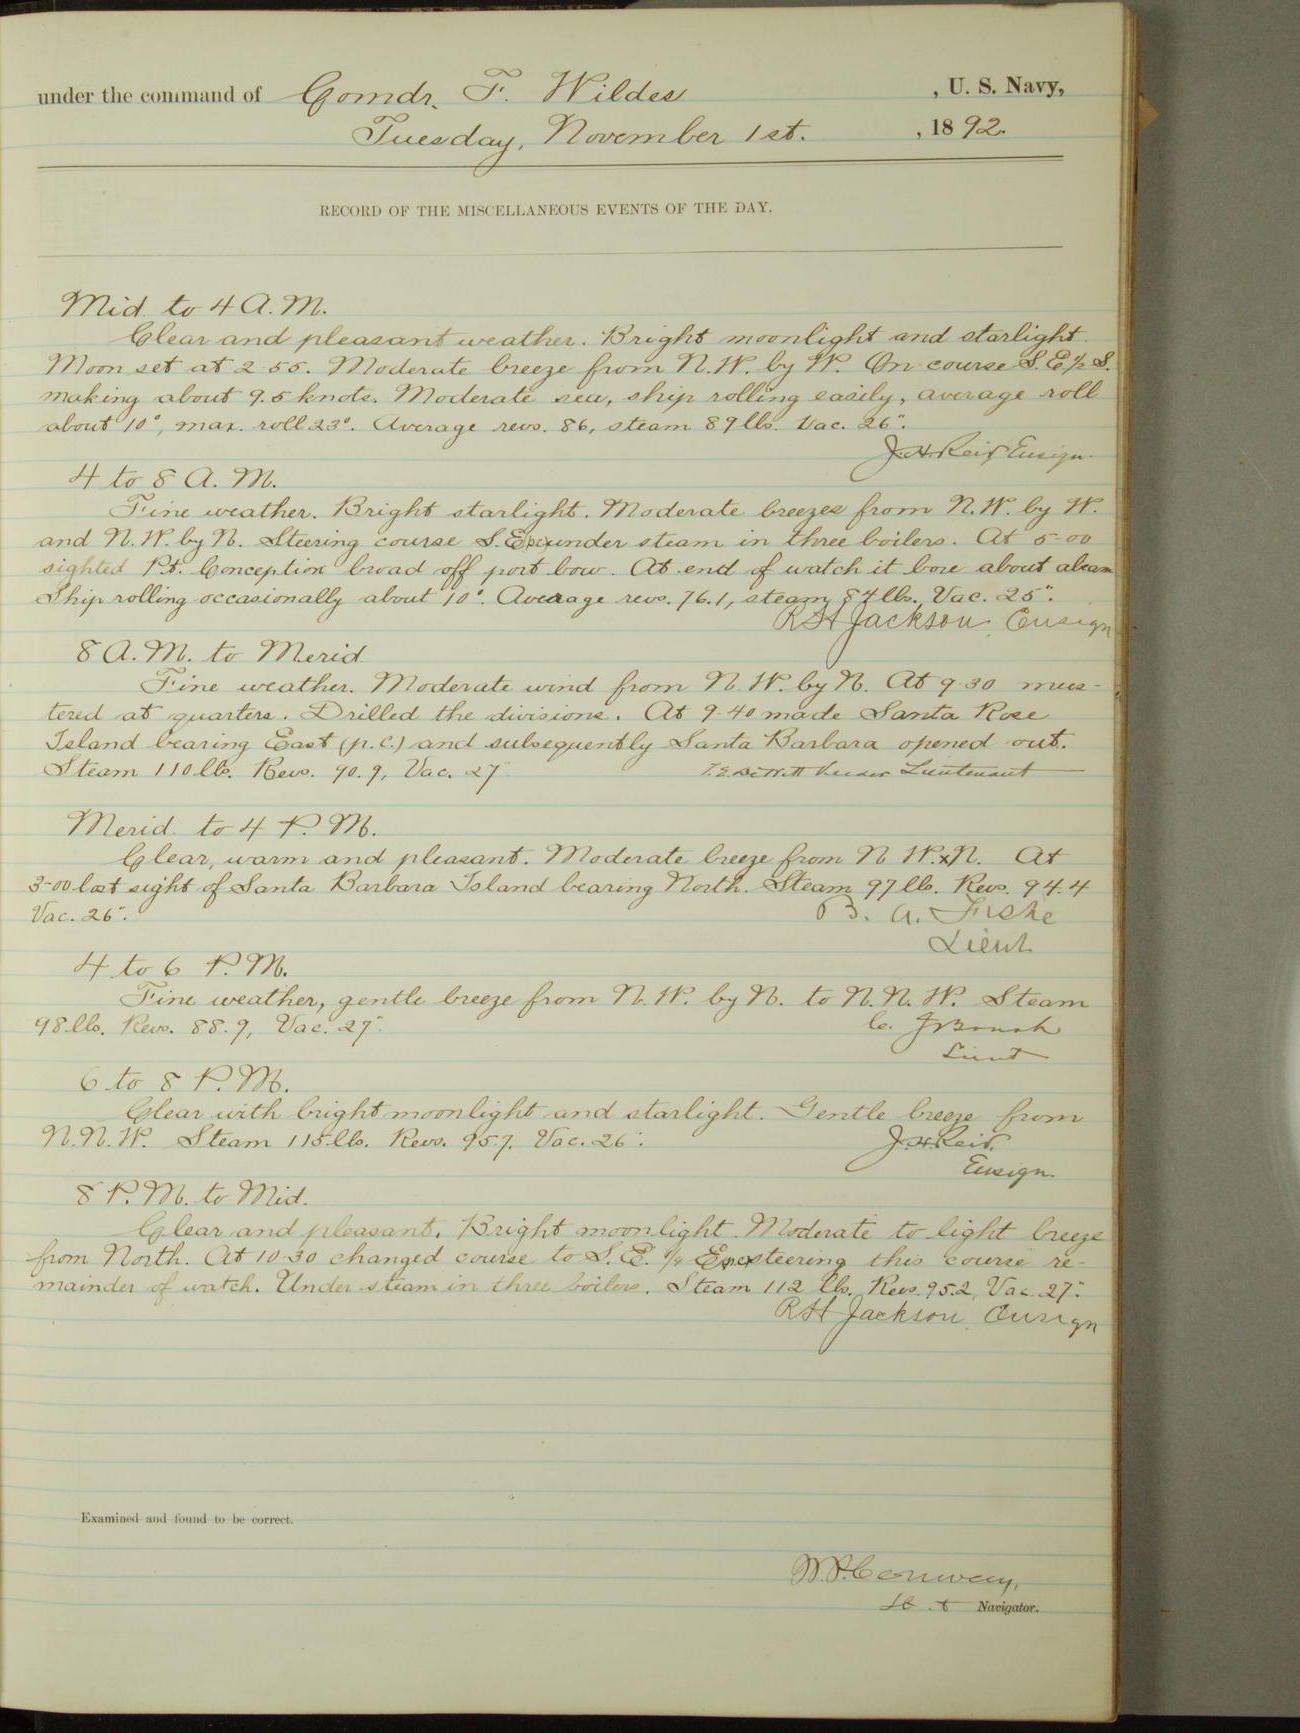 under the command of Comdr. F. Wildes , U. S. Navy,
Tuesday, November 1st. , 1892.
RECORD OF THE MISCELLANEOUS EVENTS OF THE DAY.
Mid. to 4 A.M.
Clear and pleasant weather. Bright moonlight and starlight.
Moon set at 2.55. Moderate breeze from N.W. by W. On course S.E.½ S.
making about 9.5 knots. Moderate sea, ship rolling easily, average roll
about 10°, max. roll 23°. Average revs. 86, steam 89 lbs. Vac. 26".
J.H. Reid, Ensign
4 to 8 A.M.
Fine weather. Bright starlight. Moderate breezes from N.W. by W.
and N.W. by N. Steering course S.E. (pc) under steam in three boilers. At 5-00
sighted Pt. Conception broad off port bow. At end of watch it bore about abeam
Ship rolling occasionally about 10°. Average revs. 76.1, steam 84 lbs., Vac. 25".
R H Jackson, Ensign
8 A.M. to Merid.
Fine weather. Moderate wind from N.W. by N. At 9-30 mus-
tered at quarters. Drilled the divisions. At 9-40 made Santa Rose
Island bearing East (p.c.) and subsequently Santa Barbara opened out.
Steam 110 lb. Revs. 90.9, Vac. 27" Lieutenant
Merid. to 4 P.M.
Clear, warm and pleasant. Moderate breeze from N W.xN. At
3-00 lost sight of Santa Barbara Island bearing North. Steam 97 lb. Revs. 94.4
Vac. 26". B. A. Fiske
Lieut.
4 to 6 P.M.
Fine weather, gentle breeze from N.W. by N. to N.N.W. Steam
98 lb. Revs. 88.9, Vac. 27". C. J Boush
Lieut
6 to 8 P.M.
Clear with bright moonlight and starlight. Gentle breeze from
N.N.W. Steam 115 lb. Revs. 95.7. Vac. 26". J.H. Reid.
Ensign.
8 P.M. to Mid.
Clear and pleasant. Bright moonlight. Moderate to light breeze
from North. At 10-30 changed course to S.E. ¼ E. pc steering this course re-
mainder of watch. Under steam in three boilers. Steam 112 lb. Revs. 95.2, Vac. 27".
R H Jackson, Ensign
Examined and found to be correct.
W.P. Conway,
Lt. Navigator.